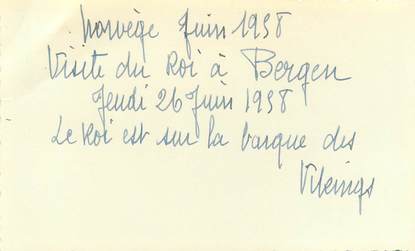 Norvège Juin 1958
Visite du Roi à Bergen
Jeudi 26 Juin 1958
Le Roi est sur la barque des
Vikings